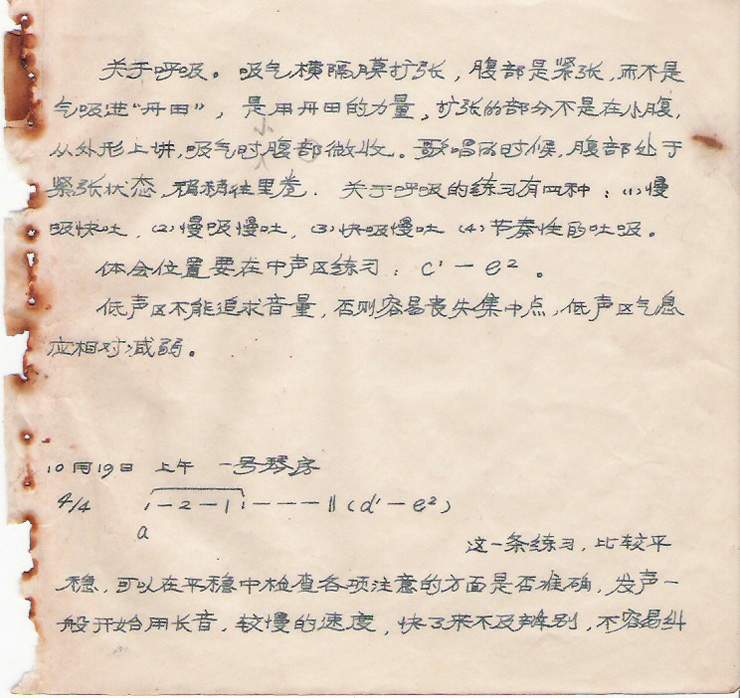 关于呼吸。吸气横隔膜扩张，腹部是紧张，而不是
气吸进“丹田”，是用丹田的力量，扩张的部分不是在小腹，
从外形上讲，吸气时小腹部微收。歌唱的时候，腹部处于
紧张状态，稍稍往里卷．关于呼吸的练习有四种：(1)慢
吸快吐，(2)慢吸慢吐，(3)快吸慢吐 (4)节奏性的吐吸。
体会位置要在中声区练习：c¹－e²。
低声区不能追求音量，否则容易丧失集中点，低声区气息
应相对减弱。
10月19日 上午 一号琴房
4/4 1－2－1 1－－－‖(d¹－e²)
a
这一条练习，比较平
稳，可以在平稳中检查各项注意的方面是否准确，发声一
般开始用长音，较慢的速度，快了来不及辨别，不容易纠